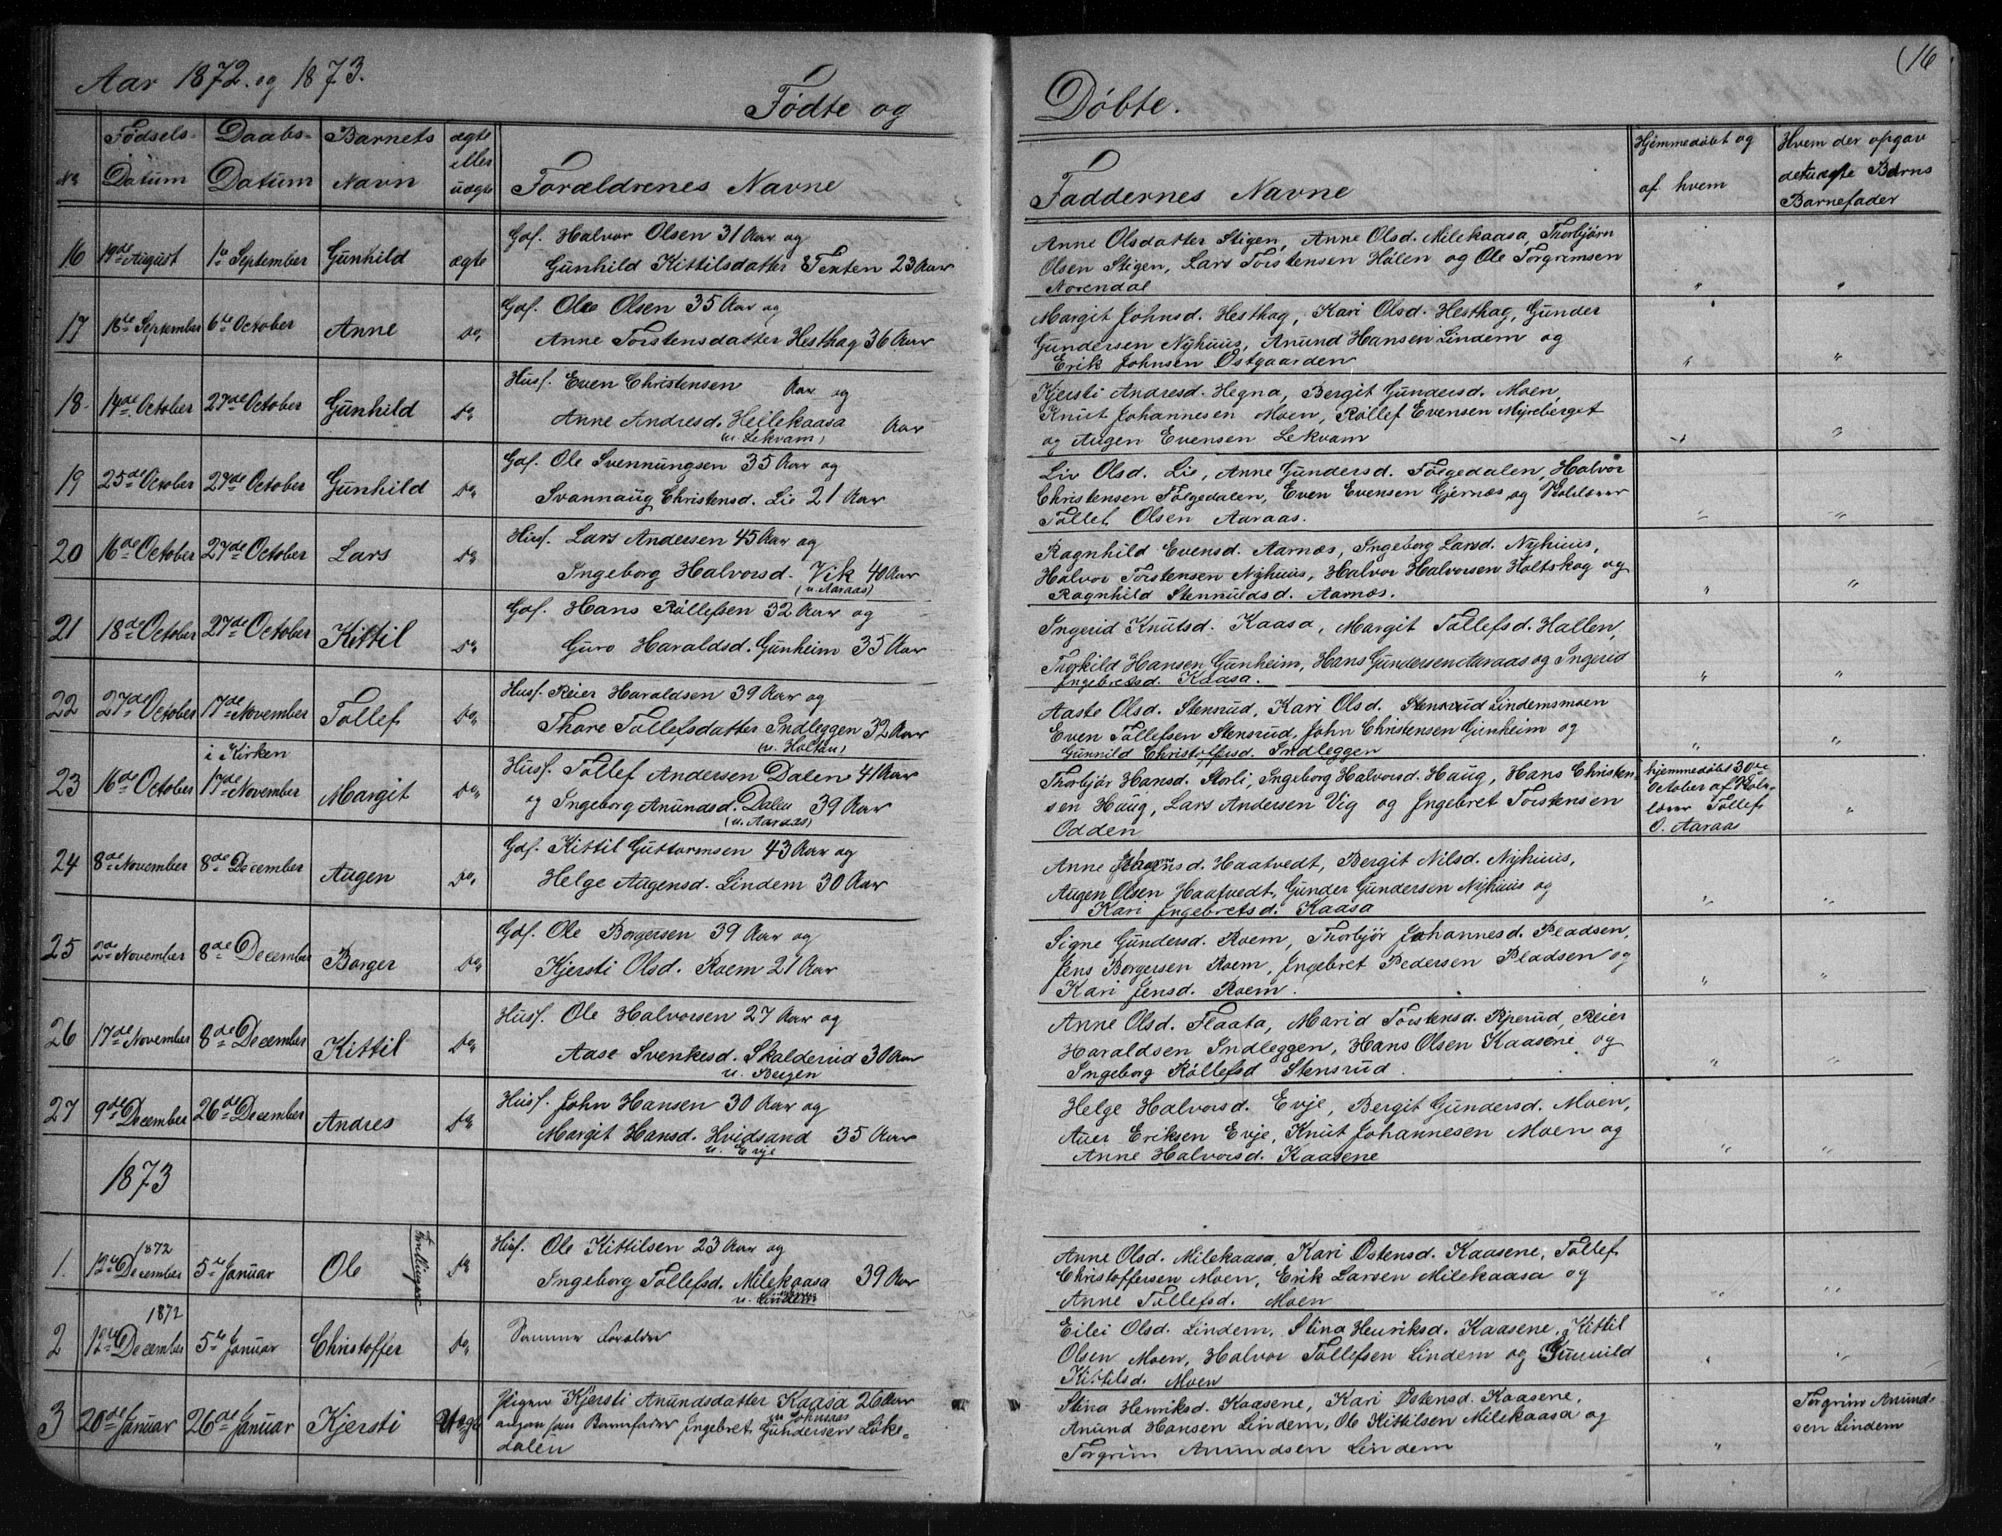 Aar 1872. og 1873.
Fødte og
Døbte.
(16
No
Fødsels-
Datum
Daabs-
Datum
Barnets
Navn
ægte
eller
uægte
Forældrenes Navne
Faddernes Navne
Hjemmedøbt og
af hvem
Hvem der opgav
det uægte Barns
Barnefader
16 19de August 1ste September Gunhild ægte
Gdf. Halvor Olsen 31 Aar og
Gunhild Kittilsdatter Tenten 23 Aar
Anne Olsdatter Stigen, Anne Olsd. Milekaasa, Thorbjørn
Olsen Stigen, Lars Torstensen Hølen og Ole Torgrimsen
Norendal
17 18de September 6te October Anne Do.
Gdf. Ole Olsen 35 Aar og
Anne Torstensdatter Hesthag 36 Aar
Margit Johnsd. Hesthag, Kari Olsd. Hesthag, Gunder
Gundersen Nyhuus, Anund Hansen Lindem og
Erik Johnsen Østgaarden
18. 14de October 27de October Gunhild Do
Husf. Even Christensen Aar og
Anne Andresd. Heilekaasa Aar
(u. Lekvam)
Kjersti Andresd. Hegna, Bergit Gundersd. Moen,
Knut Johannesen Moen, Rollef Evensen Myreberget
og Augen Evensen Lekvam
19 25de October 27de October Gunhild Do
Gdf. Ole Svennungsen 35 Aar og
Svannaug Christensd. Lie 21 Aar
Liv Olsd. Lie, Anne Gundersd. Følgedalen, Halvor
Christensen Følgedalen, Even Evensen Gjernæs og Kolelærer
Tollef Olsen Aaraas.
20 16de October 27de October Lars Do
Husf. Lars Andersen 45 Aar og
Ingeborg Halvorsd. Vik 40 Aar
(u. Aaraas)
Ragnhild Evensd. Aarnæs, Ingeborg Larsd. Nyhuus,
Halvor Torstensen Nyhuus, Halvor Halvorsen Holtskog og
Ragnhild Stennuldsd. Aarnæs.
21 18de October 27de October Kittil Do
Gdf. Hans Røllefsen 32 Aar og
Guro Haraldsd. Gunheim 35 Aar
Ingerid Knutsd. Kaasa, Margit Tollefsd. Hallen,
Thorkild Hansen Gunheim, Hans Gundersen Aaraas og Ingerid
Ingebretsd. Kaasa.
22 27de October 17de November Tollef Do.
Husf. Reier Haraldsen 39 Aar og
Thore Tollefsdatter Indleggen 32 Aar
(u. Holtan)
Aaste Olsd. Stensrud, Kari Olsd. Stensrud Lindemsmoen
Even Tollefsen Stensrud, John Christensen Gunheim og
Gunnild Christoffersd. Indleggen
i Kirken
23 16de October 17de November Margit Do.
Husf. Tollef Andersen Dalen 41 Aar
og Ingeborg Anundsd. Dalen 39 Aar
(u. Aaraas)
Thorbjør Hansd. Storli, Ingeborg Halvorsd. Haug, Hans Christen
sen Haug, Lars Andersen Vig og Ingebret Torstensen
Odden
hjemmedøbt 30te
October af Skole-
lærer Tollef
O. Aaraas
24 8de November 8de December Augen Do.
Gdf. Kittil Guttormsen 43 Aar og
Helge Augensd. Lindem 30 Aar
Anne Johannsd. Haatvedt, Bergit Nilsd. Nyhuus,
Augen Olsen Haatvedt, Gunder Gundersen Nyhuus og
Kari Ingebretsd. Kaasa
25 2de November 8de December Borger Do
Gdf. Ole Borgersen 39 Aar og
Kjersti Olsd. Roem 21 Aar
Signe Gundersd. Roem, Thorbjør Johannesd. Pladsen,
Jens Borgersen Roem, Ingebret Pedersen Pladsen og
Kari Jensd. Roem.
26 17de November 8de December Kittil Do.
Husf. Ole Halvorsen 27 Aar og
Aase Svenkesd. Skalderud 30 Aar
u. Bergen
Anne Olsd. Flaata, Marid Torstensd. Riperud, Reier
Haraldsen Indleggen, Hans Olsen Kaasene og
Ingeborg Røllefsd Stensrud.
27 9de December 26de December Andres Do
Husf. John Hansen 30 Aar og
Margit Hansd. Hvidsand 35 Aar
u. Evje
Helge Halvorsd. Evje, Bergit Gundersd. Moen,
Auer Eriksen Evje, Knut Johannesen Moen og
Anne Halvorsd. Kaasene
1873
1. 12te December 1872 5te Januar Ole Tvillinger Do
Husf. Ole Kittilsen 23 Aar og
Ingeborg Tollefsd. Milekaasa 39 Aar
u. Lindem
Anne Olsd. Milekaasa, Kari Østensd. Kaasene, Tollef
Christoffersen Moen, Erik Larsen Milekaasa og
Anne Tollefsd. Moen
2 12te December 1872 5te Januar Christoffer Do
Samme Forældre
Eilei Olsd. Lindem, Stina Henriksd. Kaasene, Kittil
Olsen Moen, Halvor Tollefsen Lindem og Gunuild
Kittilsd. Moen
3 20de Januar 26de Januar Kjersti Uægte
Pigen Kjersti Anundsdatter Kaasa 26 Aar
angav som Barnefader Ingebret Gundersen Løke-
dalen
Stina Henriksd. Kaasene, Kari Østensd. Kaasene,
Anund Hansen Lindem, Ole Kittilsen Milekaasa og
Torgrim Anundsen Lindem
Torgrim Anund-
sen Lindem